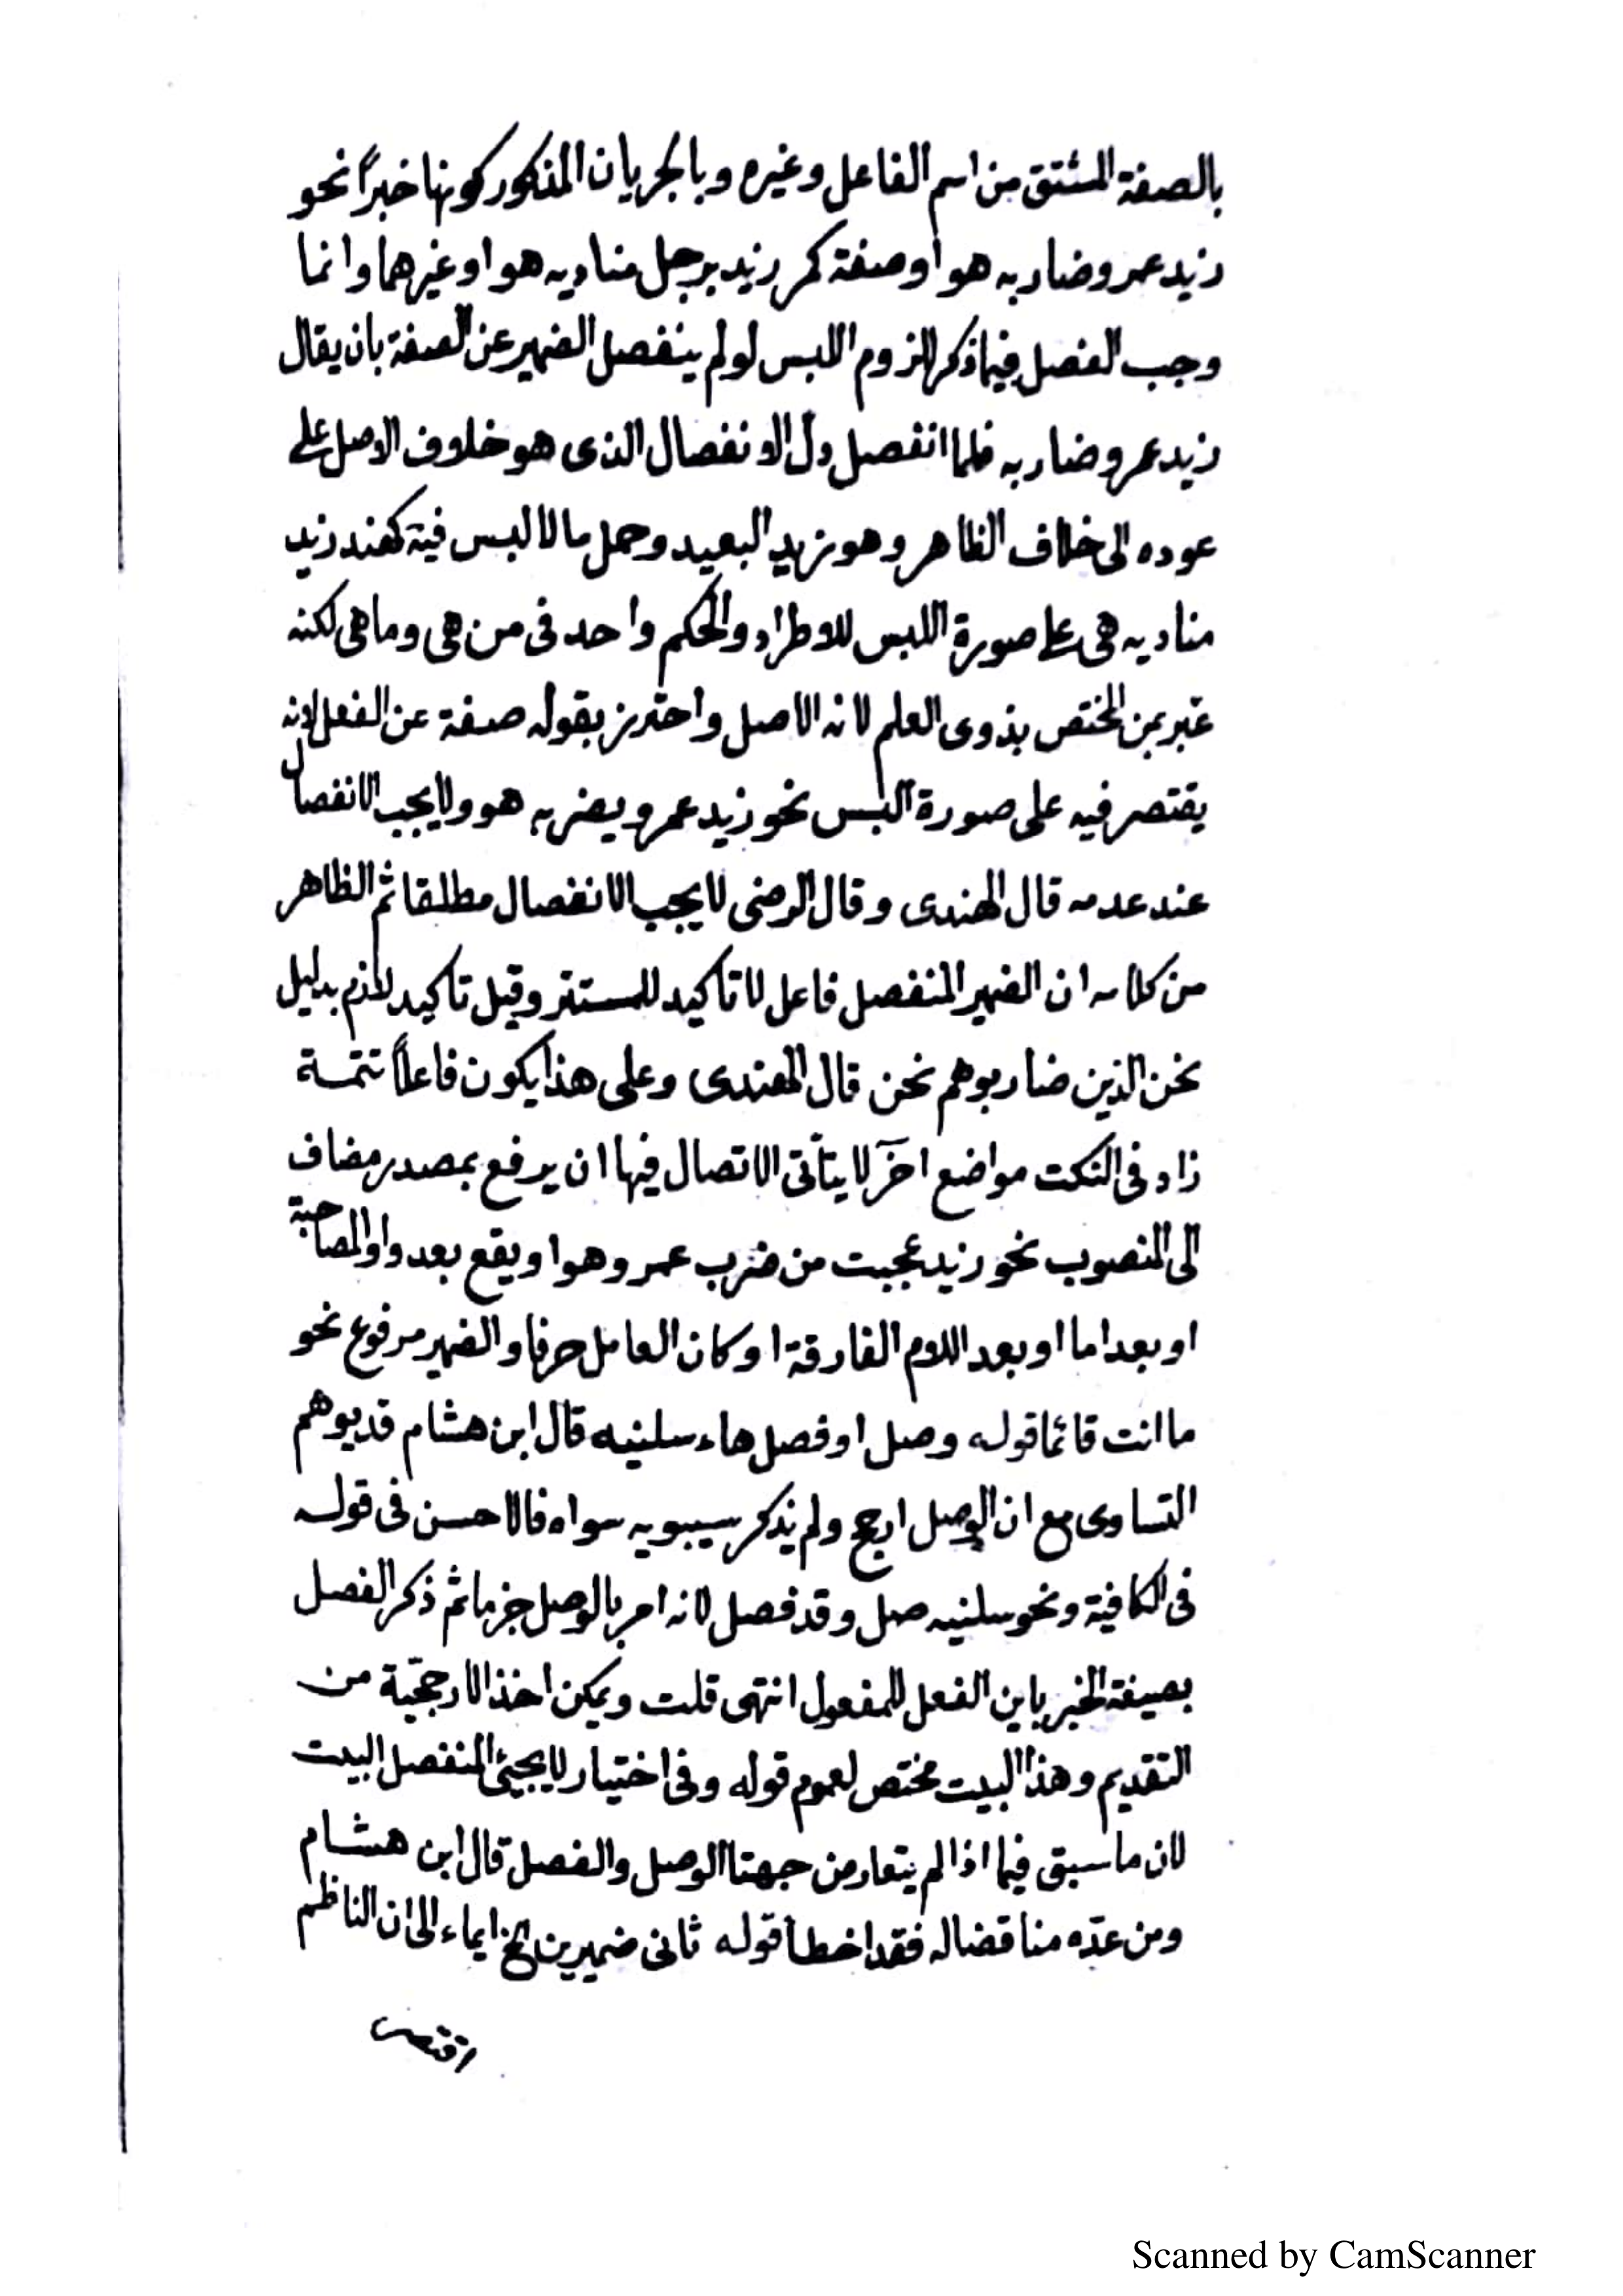 بالصفة المشتق من اسم الفاعل وغيره وبالجريان المذكور كونها خبراً نحو
زيد عمرو ضاربه هو او صفة كمر زيد برجل مناديه هو او غيرهما وانما
وجب الفصل فيما ذكر للزوم اللبس لو لم ينفصل الضمير عن الصفة بان يقال
زيد عمرو ضاربه فلما انفصل دل الانفصال الذى هو خلاف الاصل على
عوده الى خلاف الظاهر وهو زيد البعيد وحمل ما لا لبس فيه كهند زيد
مناديه هى على صورة اللبس للاطراد والحكم واحد فى من هى وما هى لكنه
عبر بمن المختص بذوى العلم لانه الاصل واحترز بقوله صفة عن الفعل لانه
يقتصر فيه على صورة اللبس نحو زيد عمرو يضربه هو ولا يجب الانفصال
عند عدمه قال الهندى وقال الرضى لا يجب الانفصال مطلقا ثم الظاهر
من كلامه ان الضمير المنفصل فاعل لا تاكيد للمستتر وقيل تاكيد لازم بدليل
نحن الذين ضاربوهم نحن قال الهندى وعلى هذا يكون فاعلاً تتمة
زاد فى النكت مواضع اخر لا يتأتى الاتصال فيها ان يرفع بمصدر مضاف
الى المنصوب نحو زيد عجبت من ضرب عمرو هو او يقع بعد واو المصاحبة
او بعد اما او بعد اللام الفارقة او كان العامل حرفا والضمير مرفوع نحو
ما انت قائما قوله وصل او فصل هاء سلنيه قال ابن هشام قد يوهم
التساوى مع ان الوصل ارجح ولم يذكر سيبويه سواه فالاحسن فى قوله
فى الكافية ونحو سلنيه صل وقد فصل لانه امر بالوصل جزما ثم ذكر الفصل
بصيغة الخبر باين الفعل للمفعول انتهى قلت ويمكن اخذ الارجحيّة من
التقديم وهذا البيت مختص لعموم قوله وفى اختيار لا يجيئ المنفصل البيت
لان ما سبق فيما اذا لم يتعارض جهتا الوصل والفصل قال ابن هشام
ومن عدّه مناقضا له فقد اخطأ قوله ثانى ضميرين الخ ايماء الى ان الناظم
Scanned by CamScanner